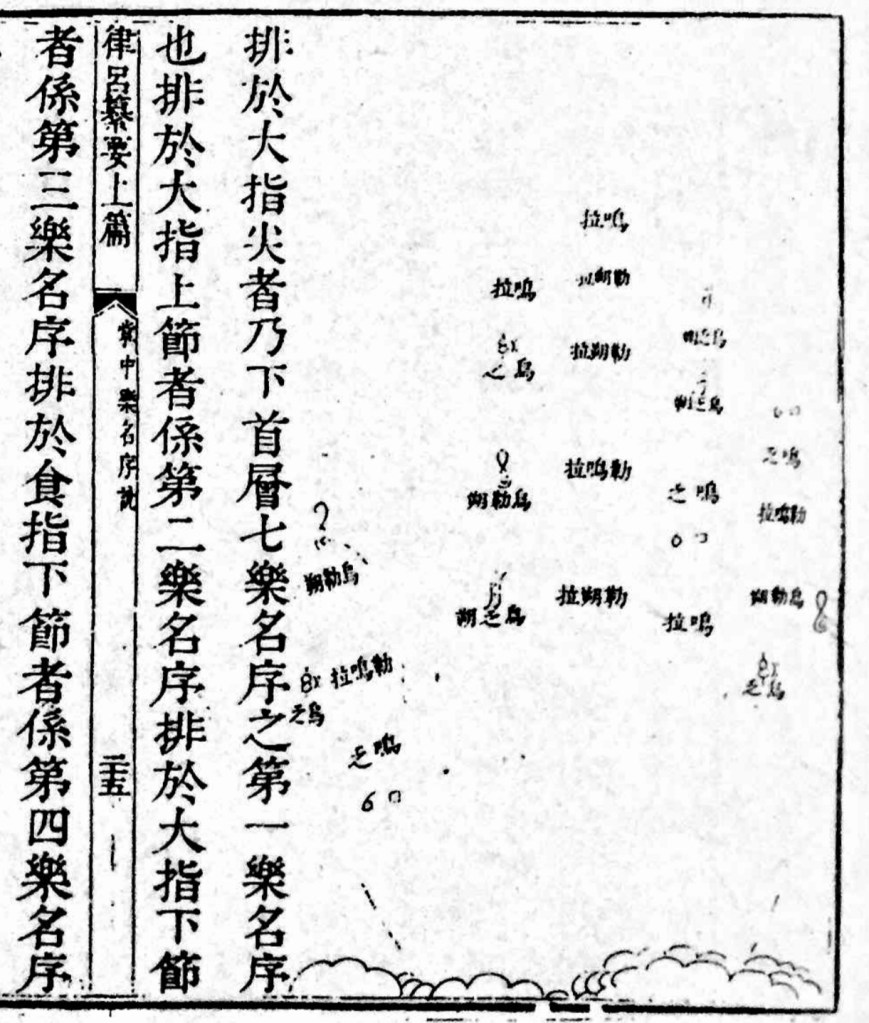 拉嗚
拉朔勒
拉朔勒
拉嗚勒
拉朔勒
拉嗚
之烏
朔勒烏
朔之烏
之嗚
拉嗚
之嗚
拉嗚勒
朔勒烏
之烏
朔勒烏
拉嗚勒
之烏
之嗚
排於大指尖者乃下首層七樂名序之第一樂名序
也排於大指上節者係第二樂名序排於大指下節
律呂纂要上篇
掌中樂名序說
二十五
者係第三樂名序排於食指下節者係第四樂名序